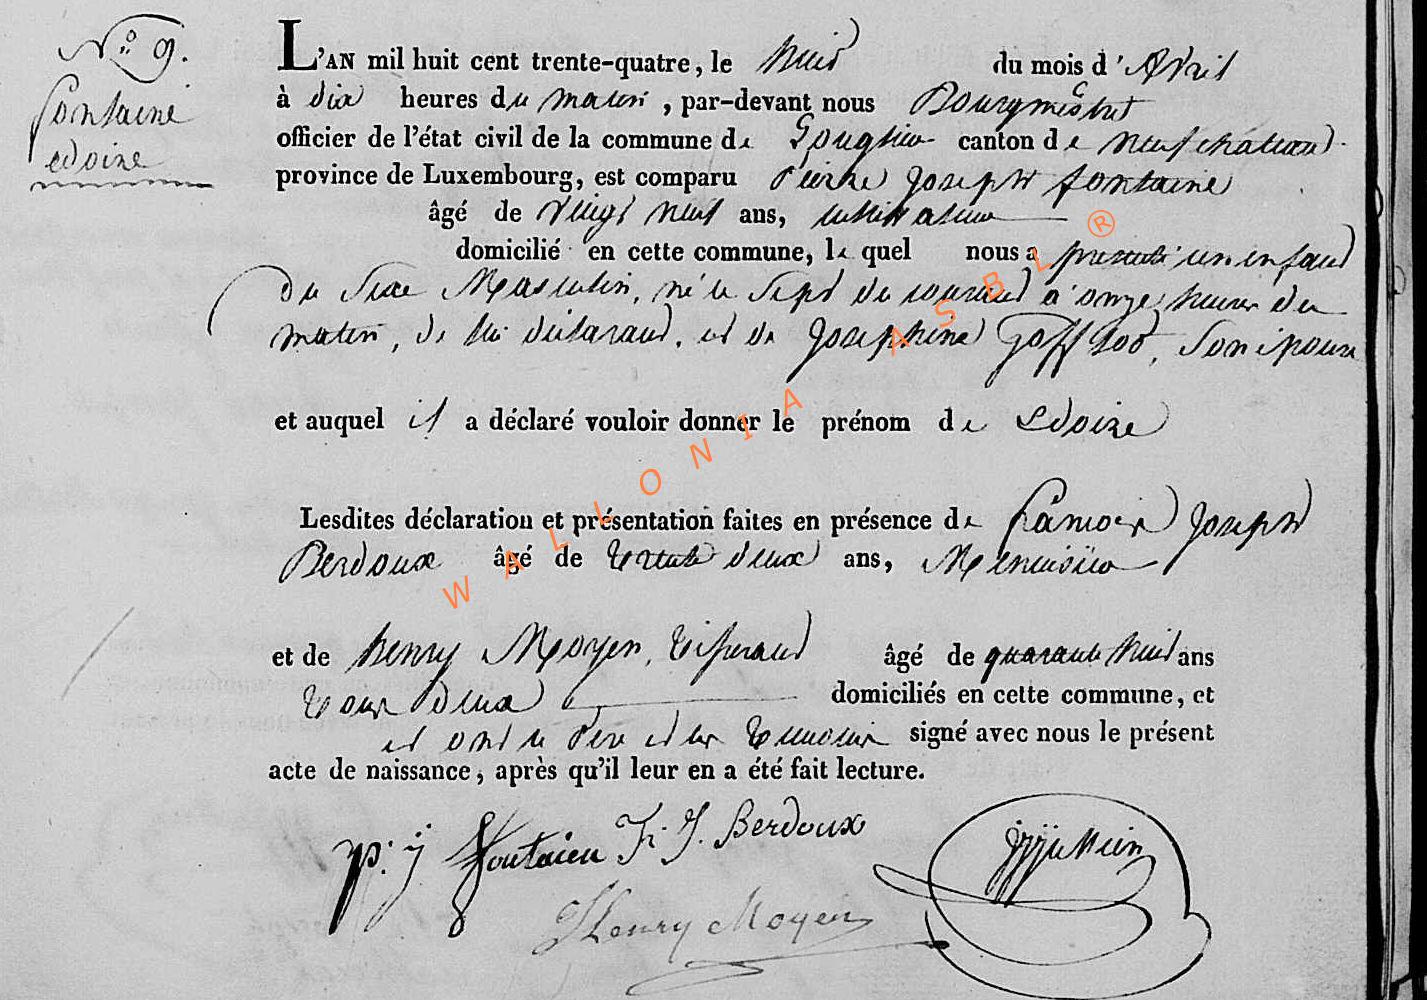 N.° 9.
fontaine
edoire
L'AN mil huit cent trente-quatre, le huit du mois d'Avril
à dix heures du matin, par-devant nous Bourgmestre
officier de l'état civil de la commune de canton de neufchateau.
province de Luxembourg, est comparu Pierre Joseph fontaine
âgé de vingt neuf ans, cultivateur
domicilié en cette commune, lequel nous a presenté un enfant
du Sexe Masculin, né le Sept du courant à onze heures du
matin, de lui déclarant, et de Josephine Goffinet, Son épouse
et auquel il a déclaré vouloir donner le prénom de Edoire
Lesdites déclaration et présentation faites en présence de françois Joseph
Berdoux âgé de trente deux ans, Menuisier
et de henry Moyen, tisserand âgé de quarante huit ans
tous deux domiciliés en cette commune, et
et ont le Père et les temoins signé avec nous le présent
acte de naissance, après qu'il leur en a été fait lecture.
p: j fontaine fr: J. Berdoux
Henry Moyen
WALLONIA ASBL ®